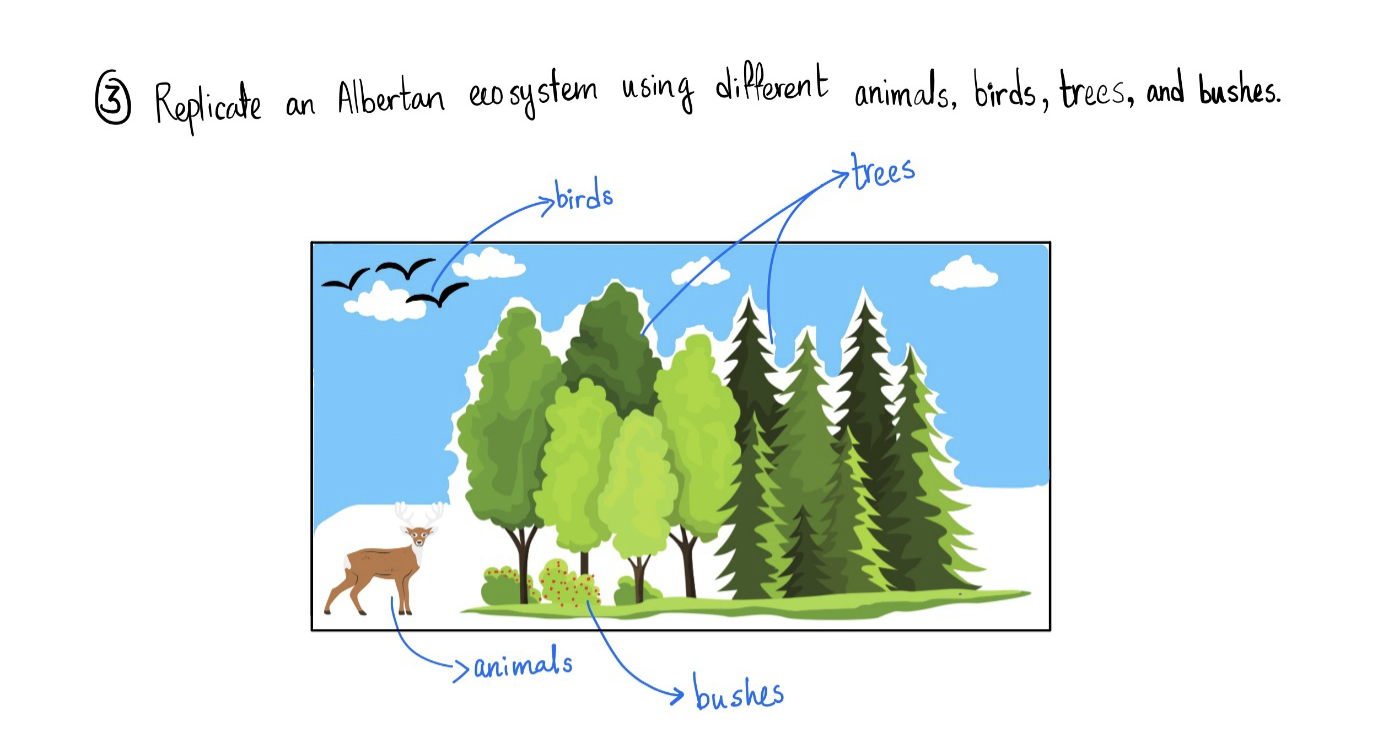 ③ Replicate an Albertan ecosystem using different animals, birds, trees, and bushes.
trees
birds
animals
bushes